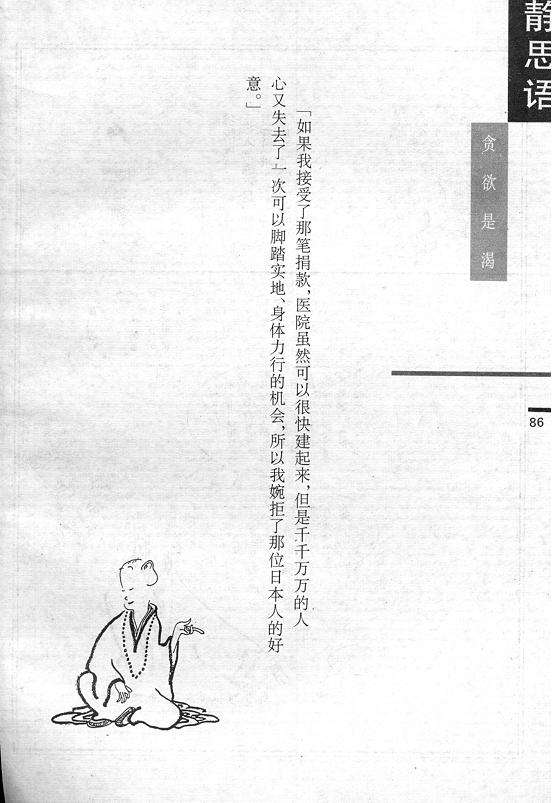 静思语
贪欲是渴
「如果我接受了那笔捐款，医院虽然可以很快建起来，但是千千万万的人
心又失去了一次可以脚踏实地、身体力行的机会，所以我婉拒了那位日本人的好
意。」
86